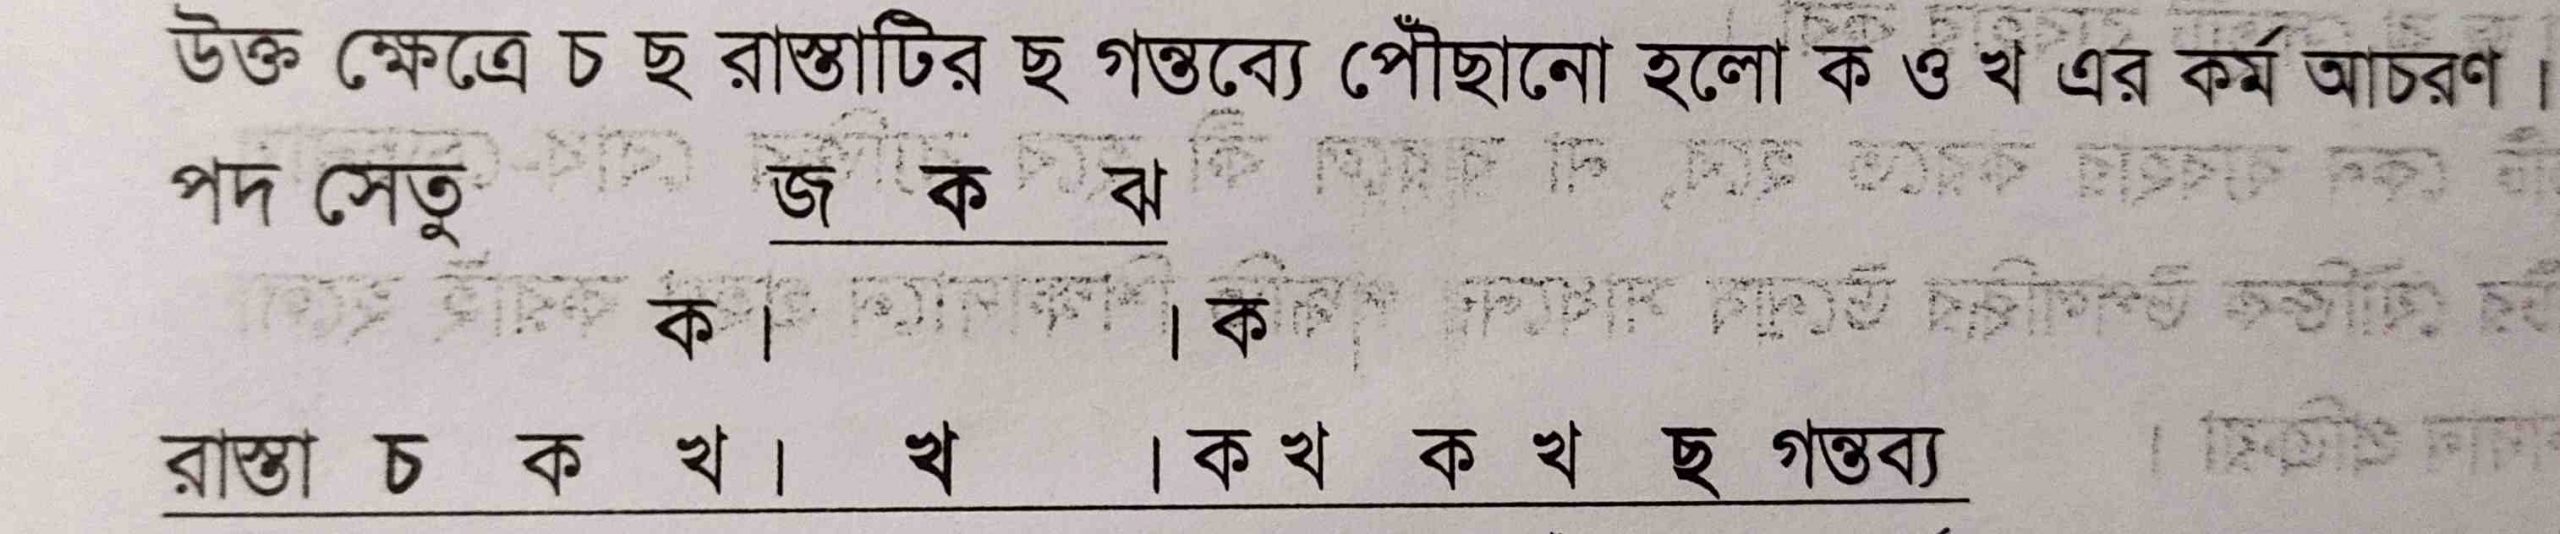 উক্ত ক্ষেত্রে চ ছ রাস্তাটির ছ গন্তব্যে পৌঁছানো হলো ক ও খ এর কর্ম আচরণ ।
পদ সেতু জ ক ঝ
ক । । ক
রাস্তা চ ক খ । খ । ক খ ক খ ছ গন্তব্য